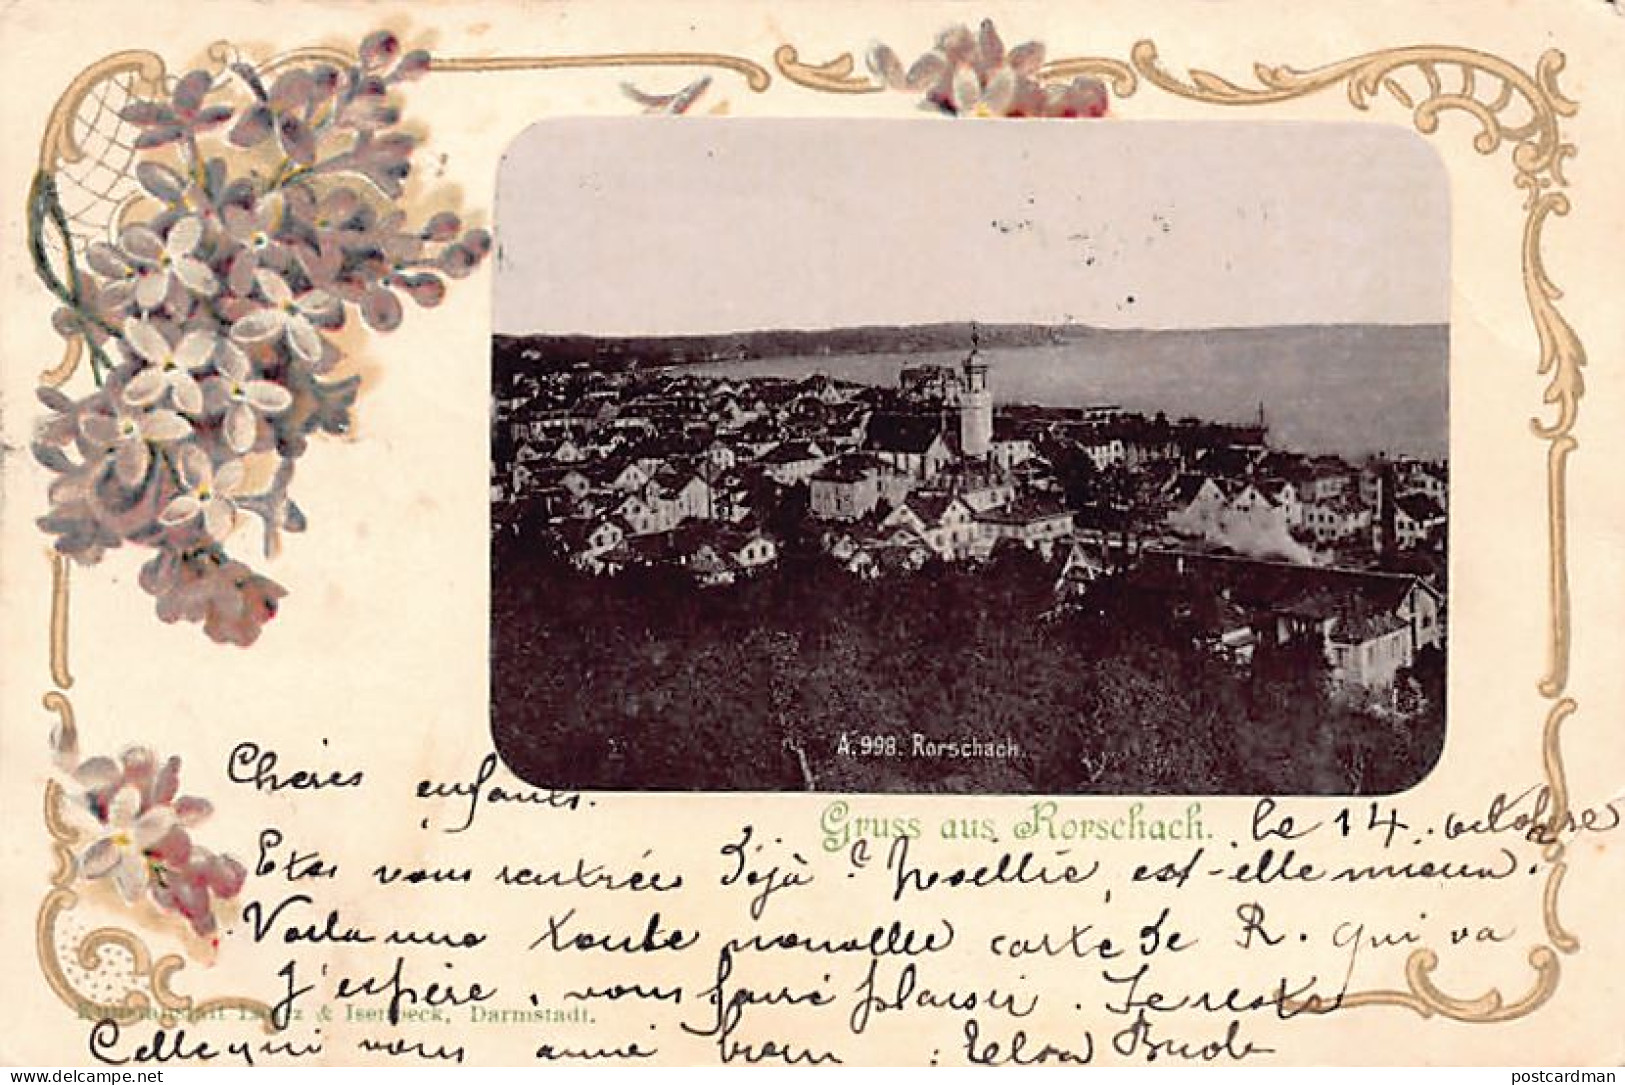 A.998. Rorschach.
Chères enfants.
Gruss aus Rorschach. le 14. octobre
Etes vous rentrées déjà? Noëllie, est-elle mieux.
Voila une toute nouvelle carte de R. qui va
j'espère, vous faire plaisir. Je reste
Kunstanstalt Lautz & Isenbeck, Darmstadt.
Celle qui vous aime bien :
delcampe.net
postcardman